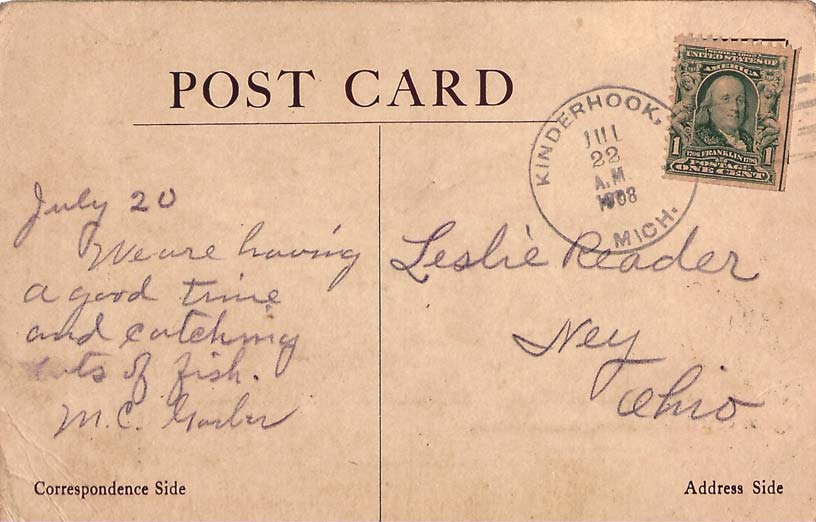 POST CARD
KINDERHOOK,
JUL
22
A.M.
1908
MICH.
SERIES 1902
UNITED STATES OF
AMERICA
1 1706 FRANKLIN 1790 1
POSTAGE
ONE CENT
July 20
We are having
a good time
and catching
lots of fish.
M.C.
Leslie Reader
Ney
Ohio
Correspondence Side
Address Side